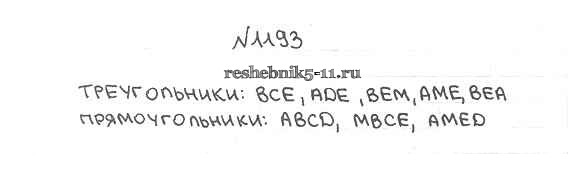 №1193
reshebnik5-11.ru
ТРЕУГОЛЬНИКИ: BCE, ADE, BEM, AME, BEA
ПРЯМОУГОЛЬНИКИ: ABCD, MBCE, AMED